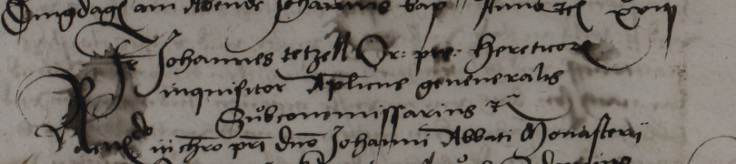 Dingdags am Abende Johannis bap Anno rc xviij
Fr Johannes tetzell Or: pre: hereticor
inquisitor Aplicus geneneralis
Subconmissarius rc
Reuendo in chro pri dno Johanni Abbati Monasterij